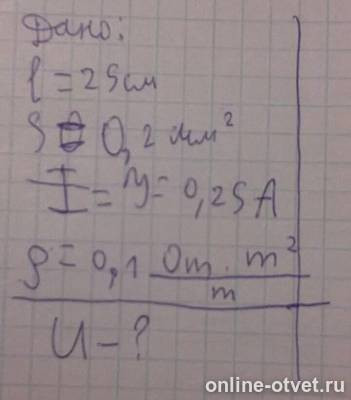 Дано:
l = 25см
S = 0,2 мм²
I = У = 0,25 А
ρ = 0,1 Om · m² / m
U - ?
online-otvet.ru